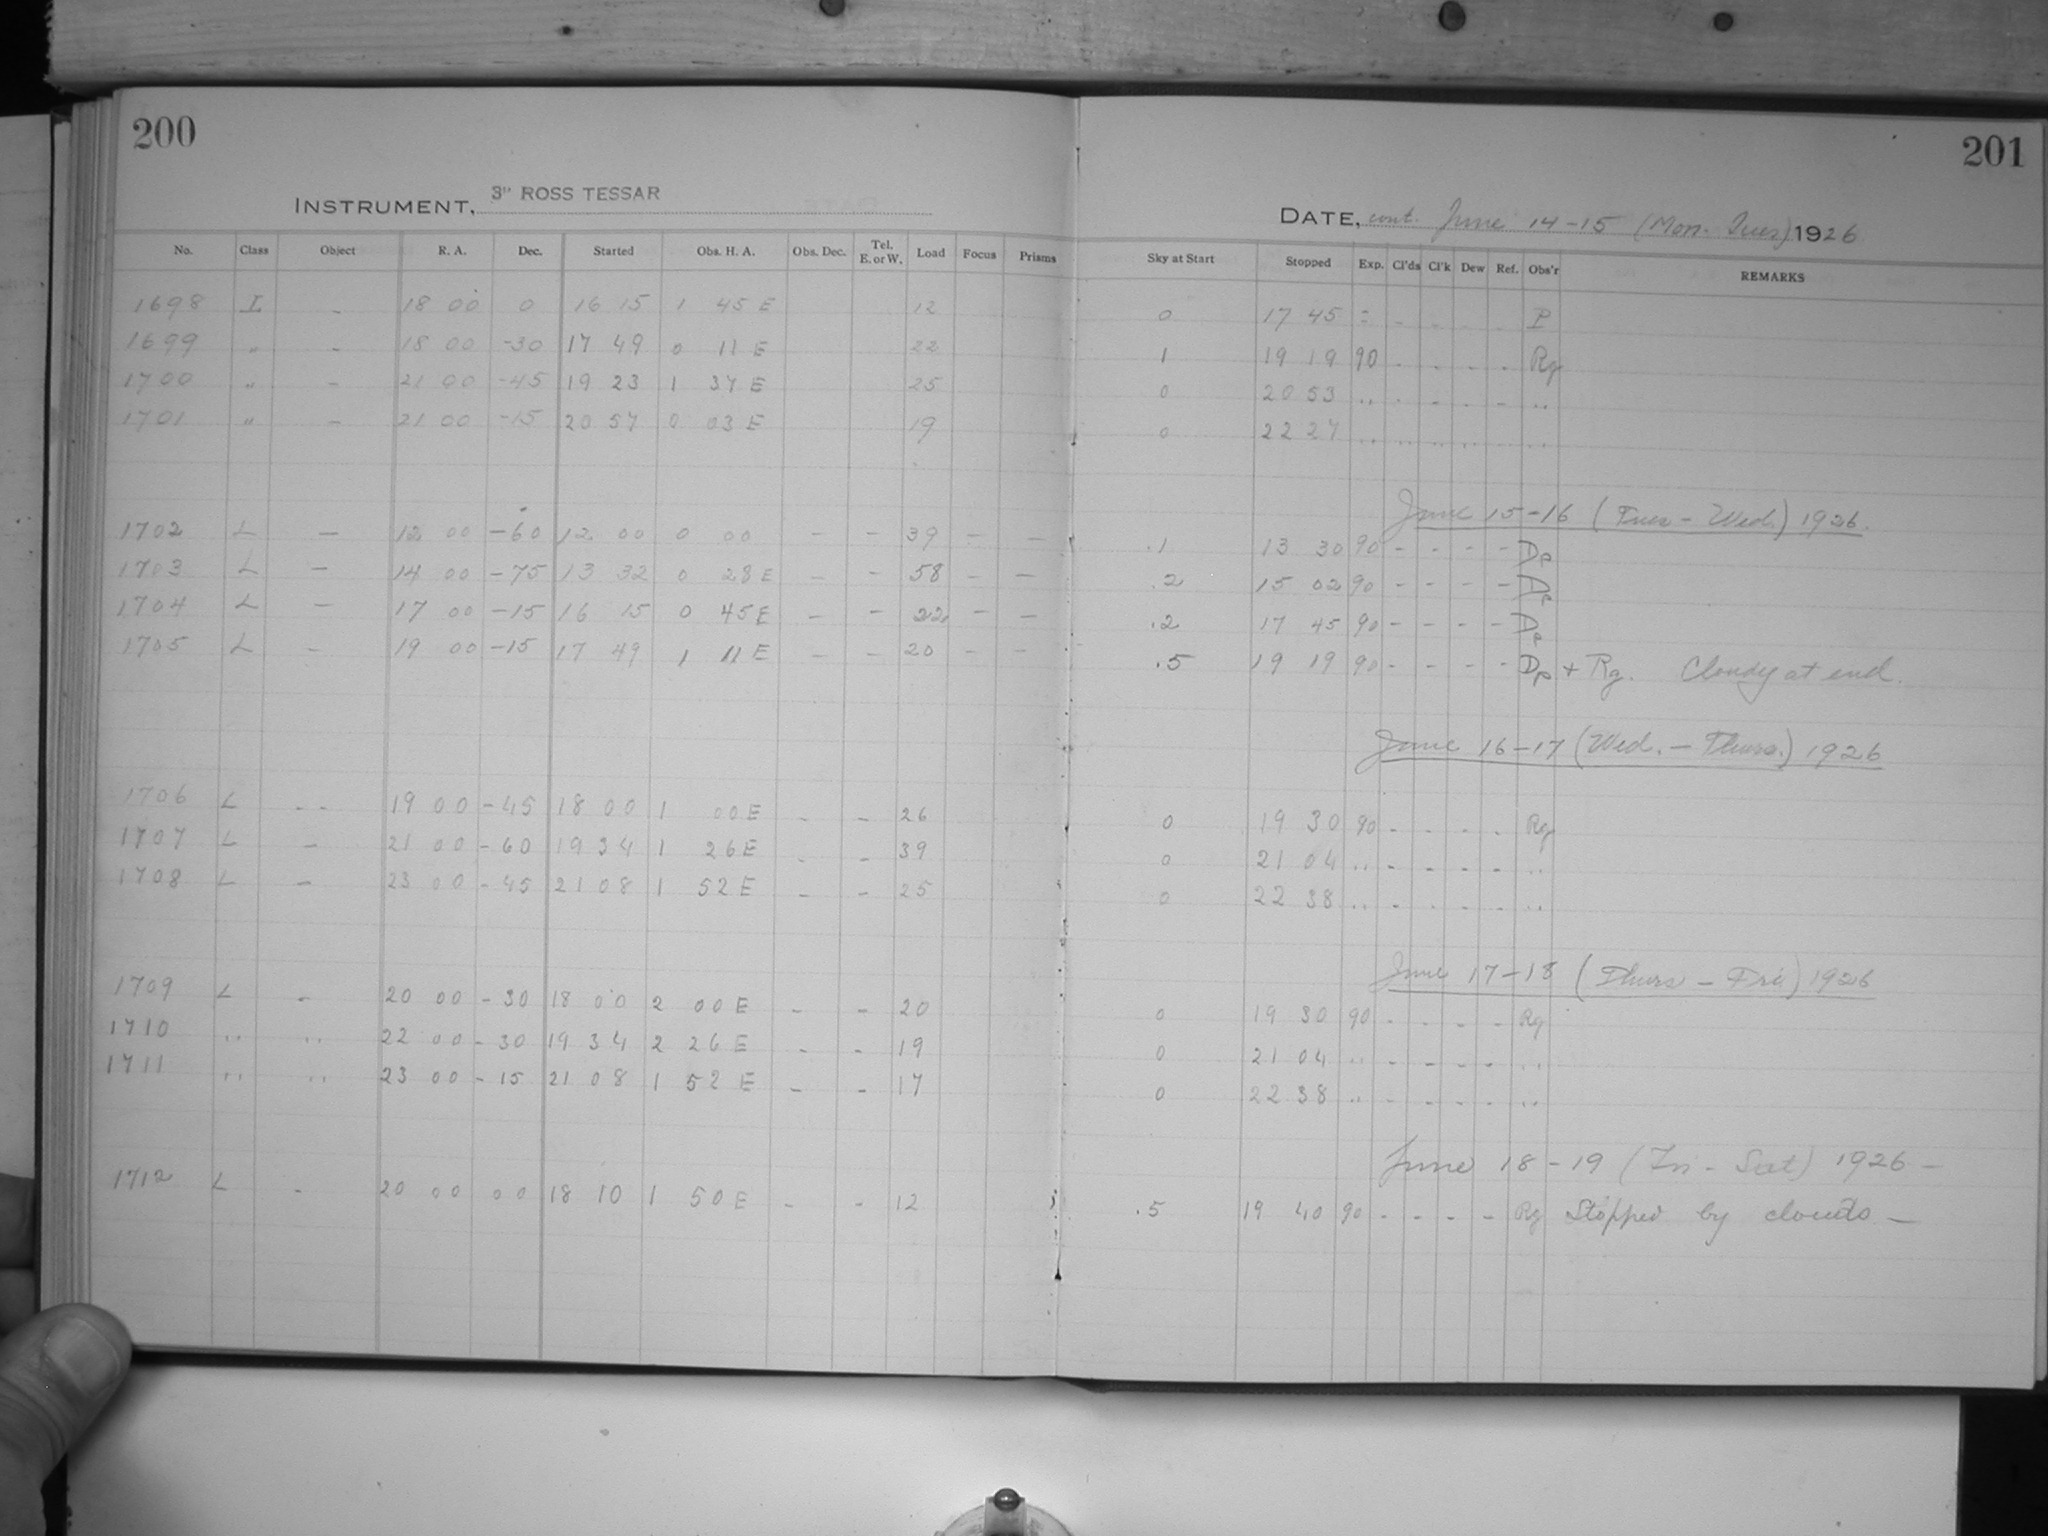 200
201
INSTRUMENT, 3" ROSS TESSAR
DATE, cont. June 14-15 (Mon. Tues) 1926
No. Class Object R. A. Dec. Started Obs. H. A. Obs. Dec. Tel. E. or W. Load Focus Prisms Sky at Start Stopped Exp. Cl'ds Cl'k Dew Ref. Obs'r REMARKS
1698 I - 18 00 0 16 15 1 45 E 12 0 17 45 : - - - - P
1699 " - 18 00 -30 17 49 0 11 E 22 1 19 19 90 - - - - Rg
1700 " - 21 00 -45 19 23 1 37 E 25 0 20 53 " - - - - "
1701 " - 21 00 -15 20 57 0 03 E 19 0 22 27 " " " " " "
June 15-16 (Tues - Wed.) 1926.
1702 L - 12 00 -60 12 00 0 00 - - 39 - - .1 13 30 90 - - - - Dp
1703 L - 14 00 -75 13 32 0 28 E - - 58 - - .2 15 02 90 - - - -
1704 L - 17 00 -15 16 15 0 45 E - - 22 - - .2 17 45 90 - - - -
1705 L - 19 00 -15 17 49 1 11 E - - 20 - - .5 19 19 90 - - - - Dp + Rg. Cloudy at end.
June 16-17 (Wed. - Thurs.) 1926
1706 L - - 19 00 -45 18 00 1 00 E - - 26 0 19 30 90 - - - - Rg
1707 L - 21 00 -60 19 34 1 26 E - - 39 0 21 04 " - - - - "
1708 L - 23 00 -45 21 08 1 52 E - - 25 0 22 38 " - - - - "
June 17-18 (Thurs - Fri) 1926
1709 L - 20 00 -30 18 00 2 00 E - - 20 0 19 30 90 - - - - Rg
1710 " " 22 00 -30 19 34 2 26 E - - 19 0 21 04 " - - - - "
1711 " " 23 00 -15 21 08 1 52 E - - 17 0 22 38 " - - - - "
June 18-19 (Fri - Sat) 1926 -
1712 L - 20 00 00 18 10 1 50 E - - 12 .5 19 40 90 - - - - Rg Stopped by clouds -